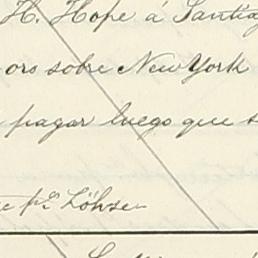 H. Hope á Santia
ors sobre New York
pagar luego que s
pr Löhsen